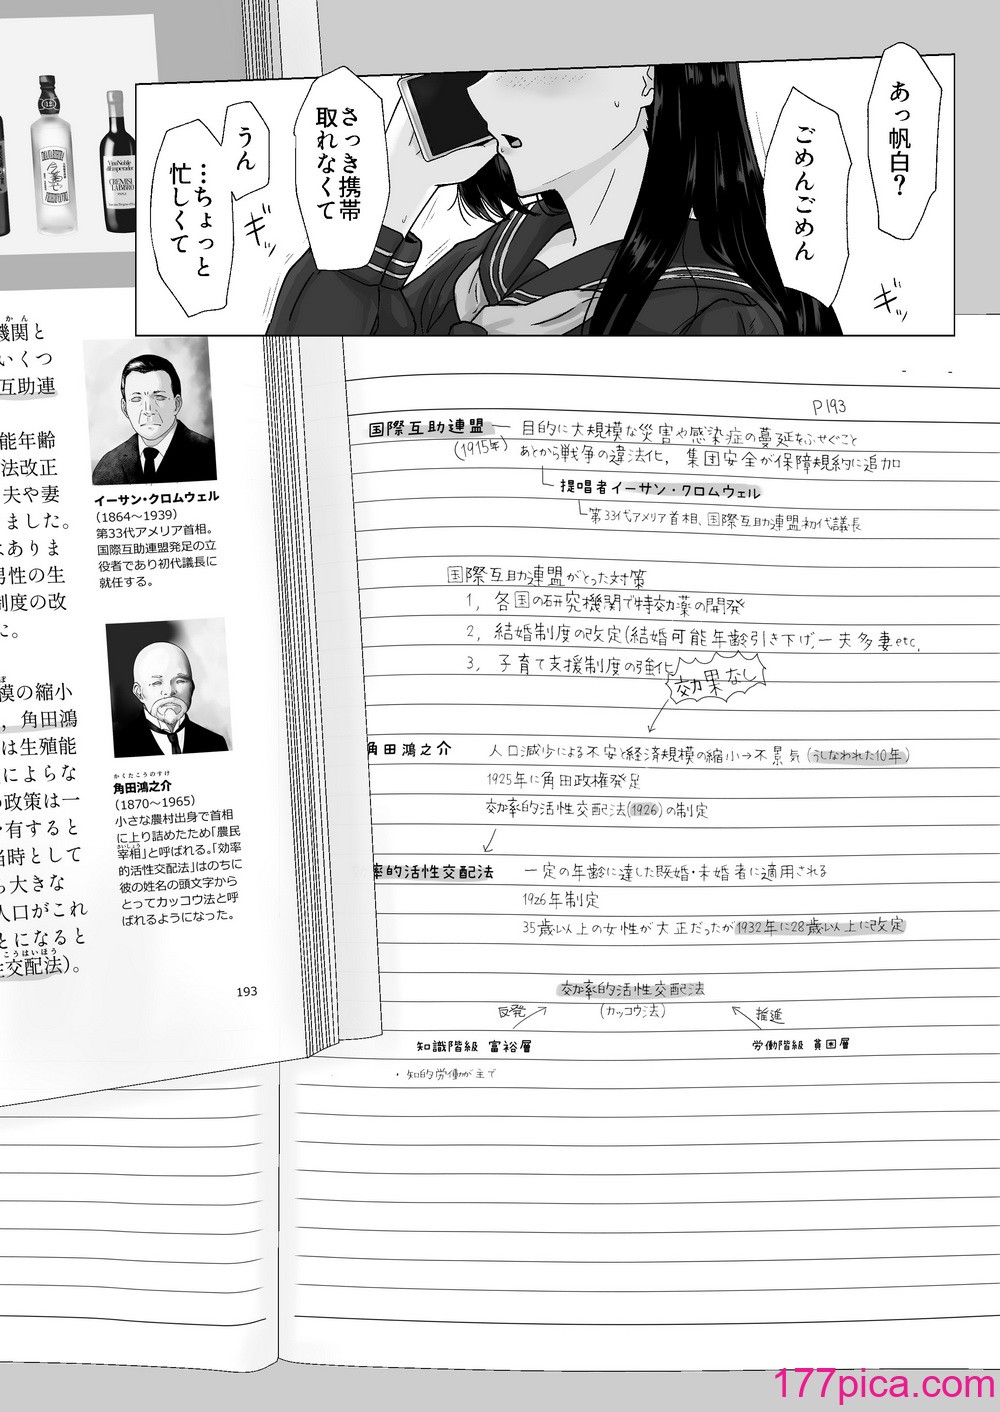 あっ帆白？
ごめんごめん
さっき携帯
取れなくて
うん
…ちょっと
忙しくて
ギッ
ギッ
かん
機関と
いくつ
互助連
能年齢
法改正
夫や妻
ました。
はありま
男性の生
制度の改
た。
模の縮小
，角田鴻
は生殖能
によらな
の政策は一
有すると
当時として
ら大きな
人口がこれ
とになると
こうはいほう
性交配法）。
イーサン・クロムウェル
（1864〜1939）
第33代アメリア首相。
国際互助連盟発足の立
役者であり初代議長に
就任する。
かくたこうのすけ
角田鴻之介
（1870〜1965）
小さな農村出身で首相
に上り詰めたため「農民
さいしょう
宰相」と呼ばれる。「効率
的活性交配法」はのちに
彼の姓名の頭文字から
とってカッコウ法と呼
ばれるようになった。
193
P193
国際互助連盟 目的に大規模な災害や感染症の蔓延をふせぐこと
(1915年) あとから戦争の違法化，集団安全が保障規約に追加
提唱者イーサン・クロムウェル
第33代アメリア首相、国際互助連盟初代議長
国際互助連盟がとった対策
1，各国の研究機関で特効薬の開発
2，結婚制度の改定(結婚可能年齢引き下げ，一夫多妻etc，
3，子育て支援制度の強化
効果なし
角田鴻之介 人口減少による不安と経済規模の縮小→不景気(うしなわれた10年)
1925年に角田政権発足
効率的活性交配法(1926)の制定
率的活性交配法 一定の年齢に達した既婚・未婚者に適用される
1926年制定
35歳以上の女性が大正だったが1932年に28歳以上に改定
効率的活性交配法
反発 (カッコウ法) 推進
知識階級 富裕層 労働階級 貧困層
・知的労働が主で
177pica.com